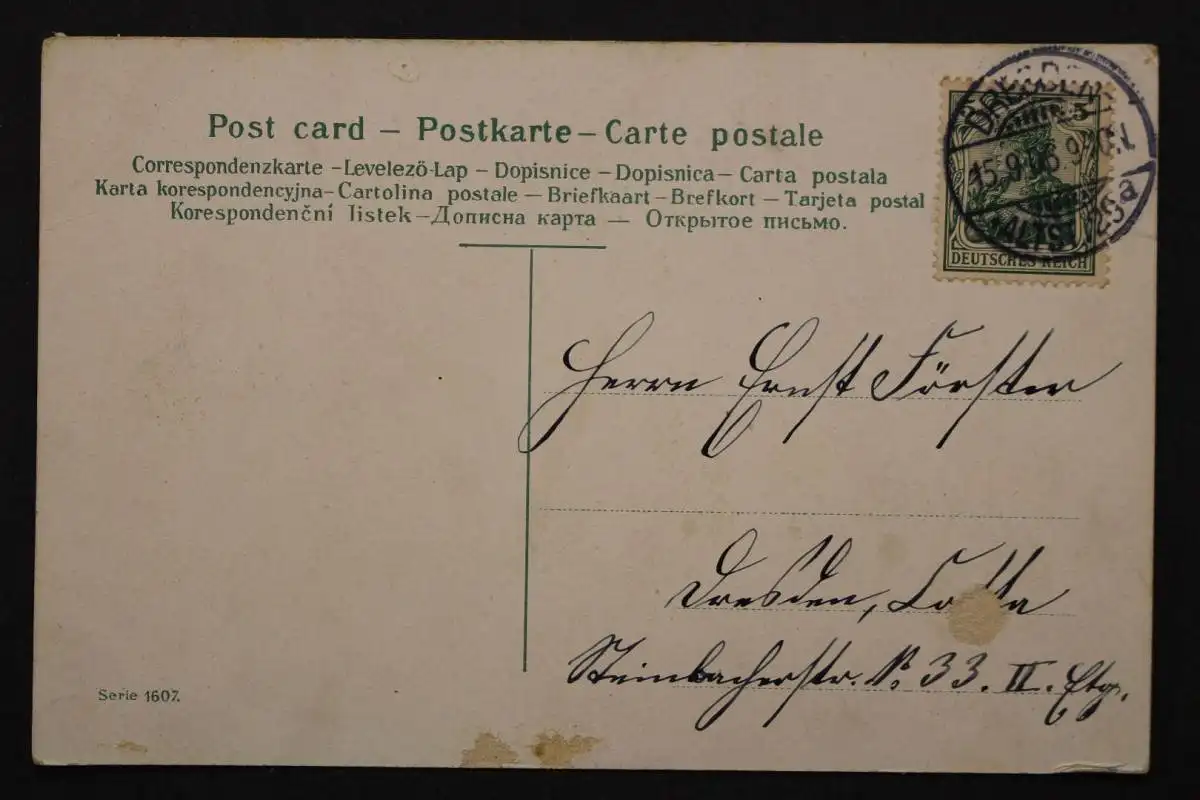 Post card – Postkarte – Carte postale
Correspondenzkarte – Levelező-Lap – Dopisnice – Dopisnica – Carta postala
Karta korespondencyjna – Cartolina postale – Briefkaart – Brefkort – Tarjeta postal
Korespondenční listek – Дописна карта — Открытое письмо.
DRESDEN
15.9.06 9-10N.
ALTST. 26 a
DEUTSCHES REICH
Herrn Ernst Förster
Dresden, Cotta
Steinbacherstr. No 33. II. Etg.
Serie 1607.